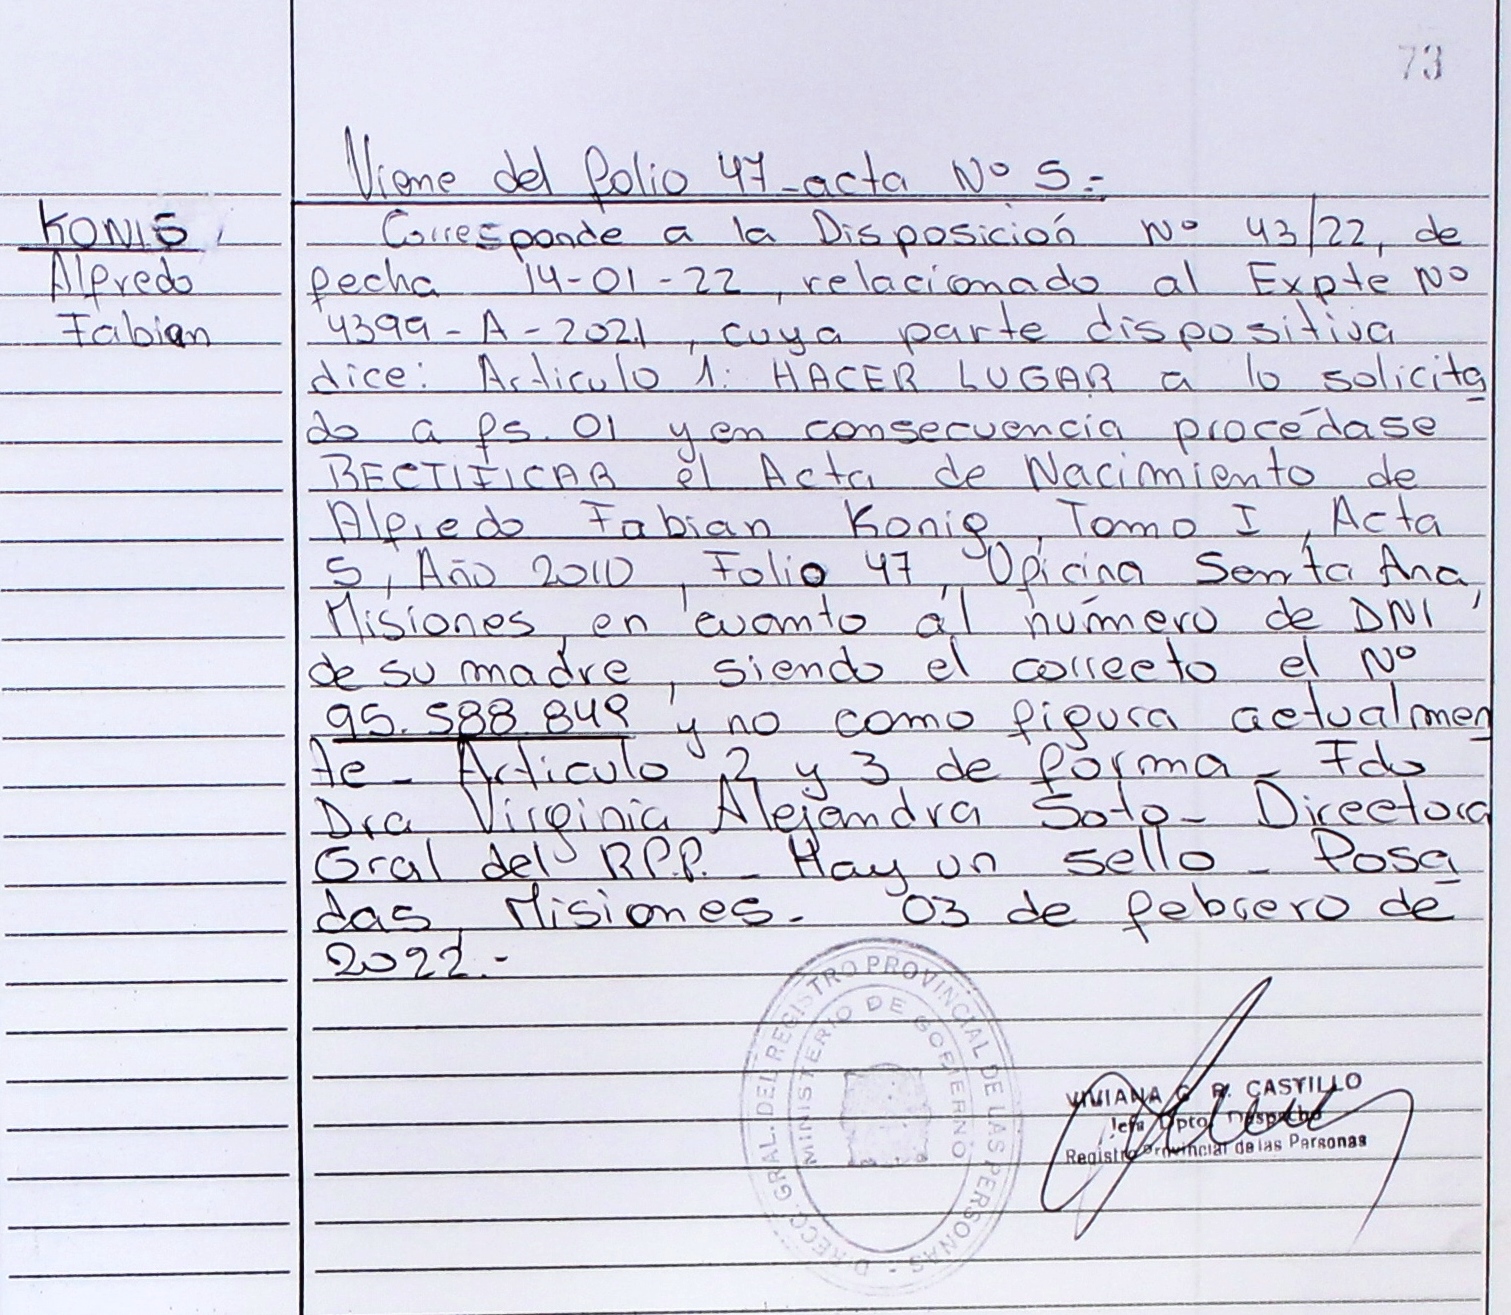 73
Viene del folio 47-acta Nº 5.-
KONIG
Alfredo
Fabian
Corresponde a la Disposición Nº 43/22, de
fecha 14-01-22, relacionado al Expte Nº
4399-A-2021, cuya parte dispositiva
dice: Articulo 1: HACER LUGAR a lo solicita
do a fs. 01 y en consecuencia procédase
RECTIFICAR el Acta de Nacimiento de
Alfredo Fabian Konig, Tomo I, Acta
5, Año 2010, Folio 47, Oficina Santa Ana,
Misiones, en cuanto al número de DNI
de su madre, siendo el correcto el Nº
95.588.848 y no como figura actualmen
te- Articulo 2 y 3 de forma- Fdo
Dra Virginia Alejandra Soto- Directora
Gral del R.P.P.- Hay un sello- Posa
das, Misiones.- 03 de febrero de
2022.-
DIRECC. GRAL. DEL REGISTRO PROVINCIAL DE LAS PERSONAS -
MINISTERIO DE GOBIERNO
VIVIANA G. R. CASTILLO
Jefa Dpto. Despacho
Registro Provincial de las Personas